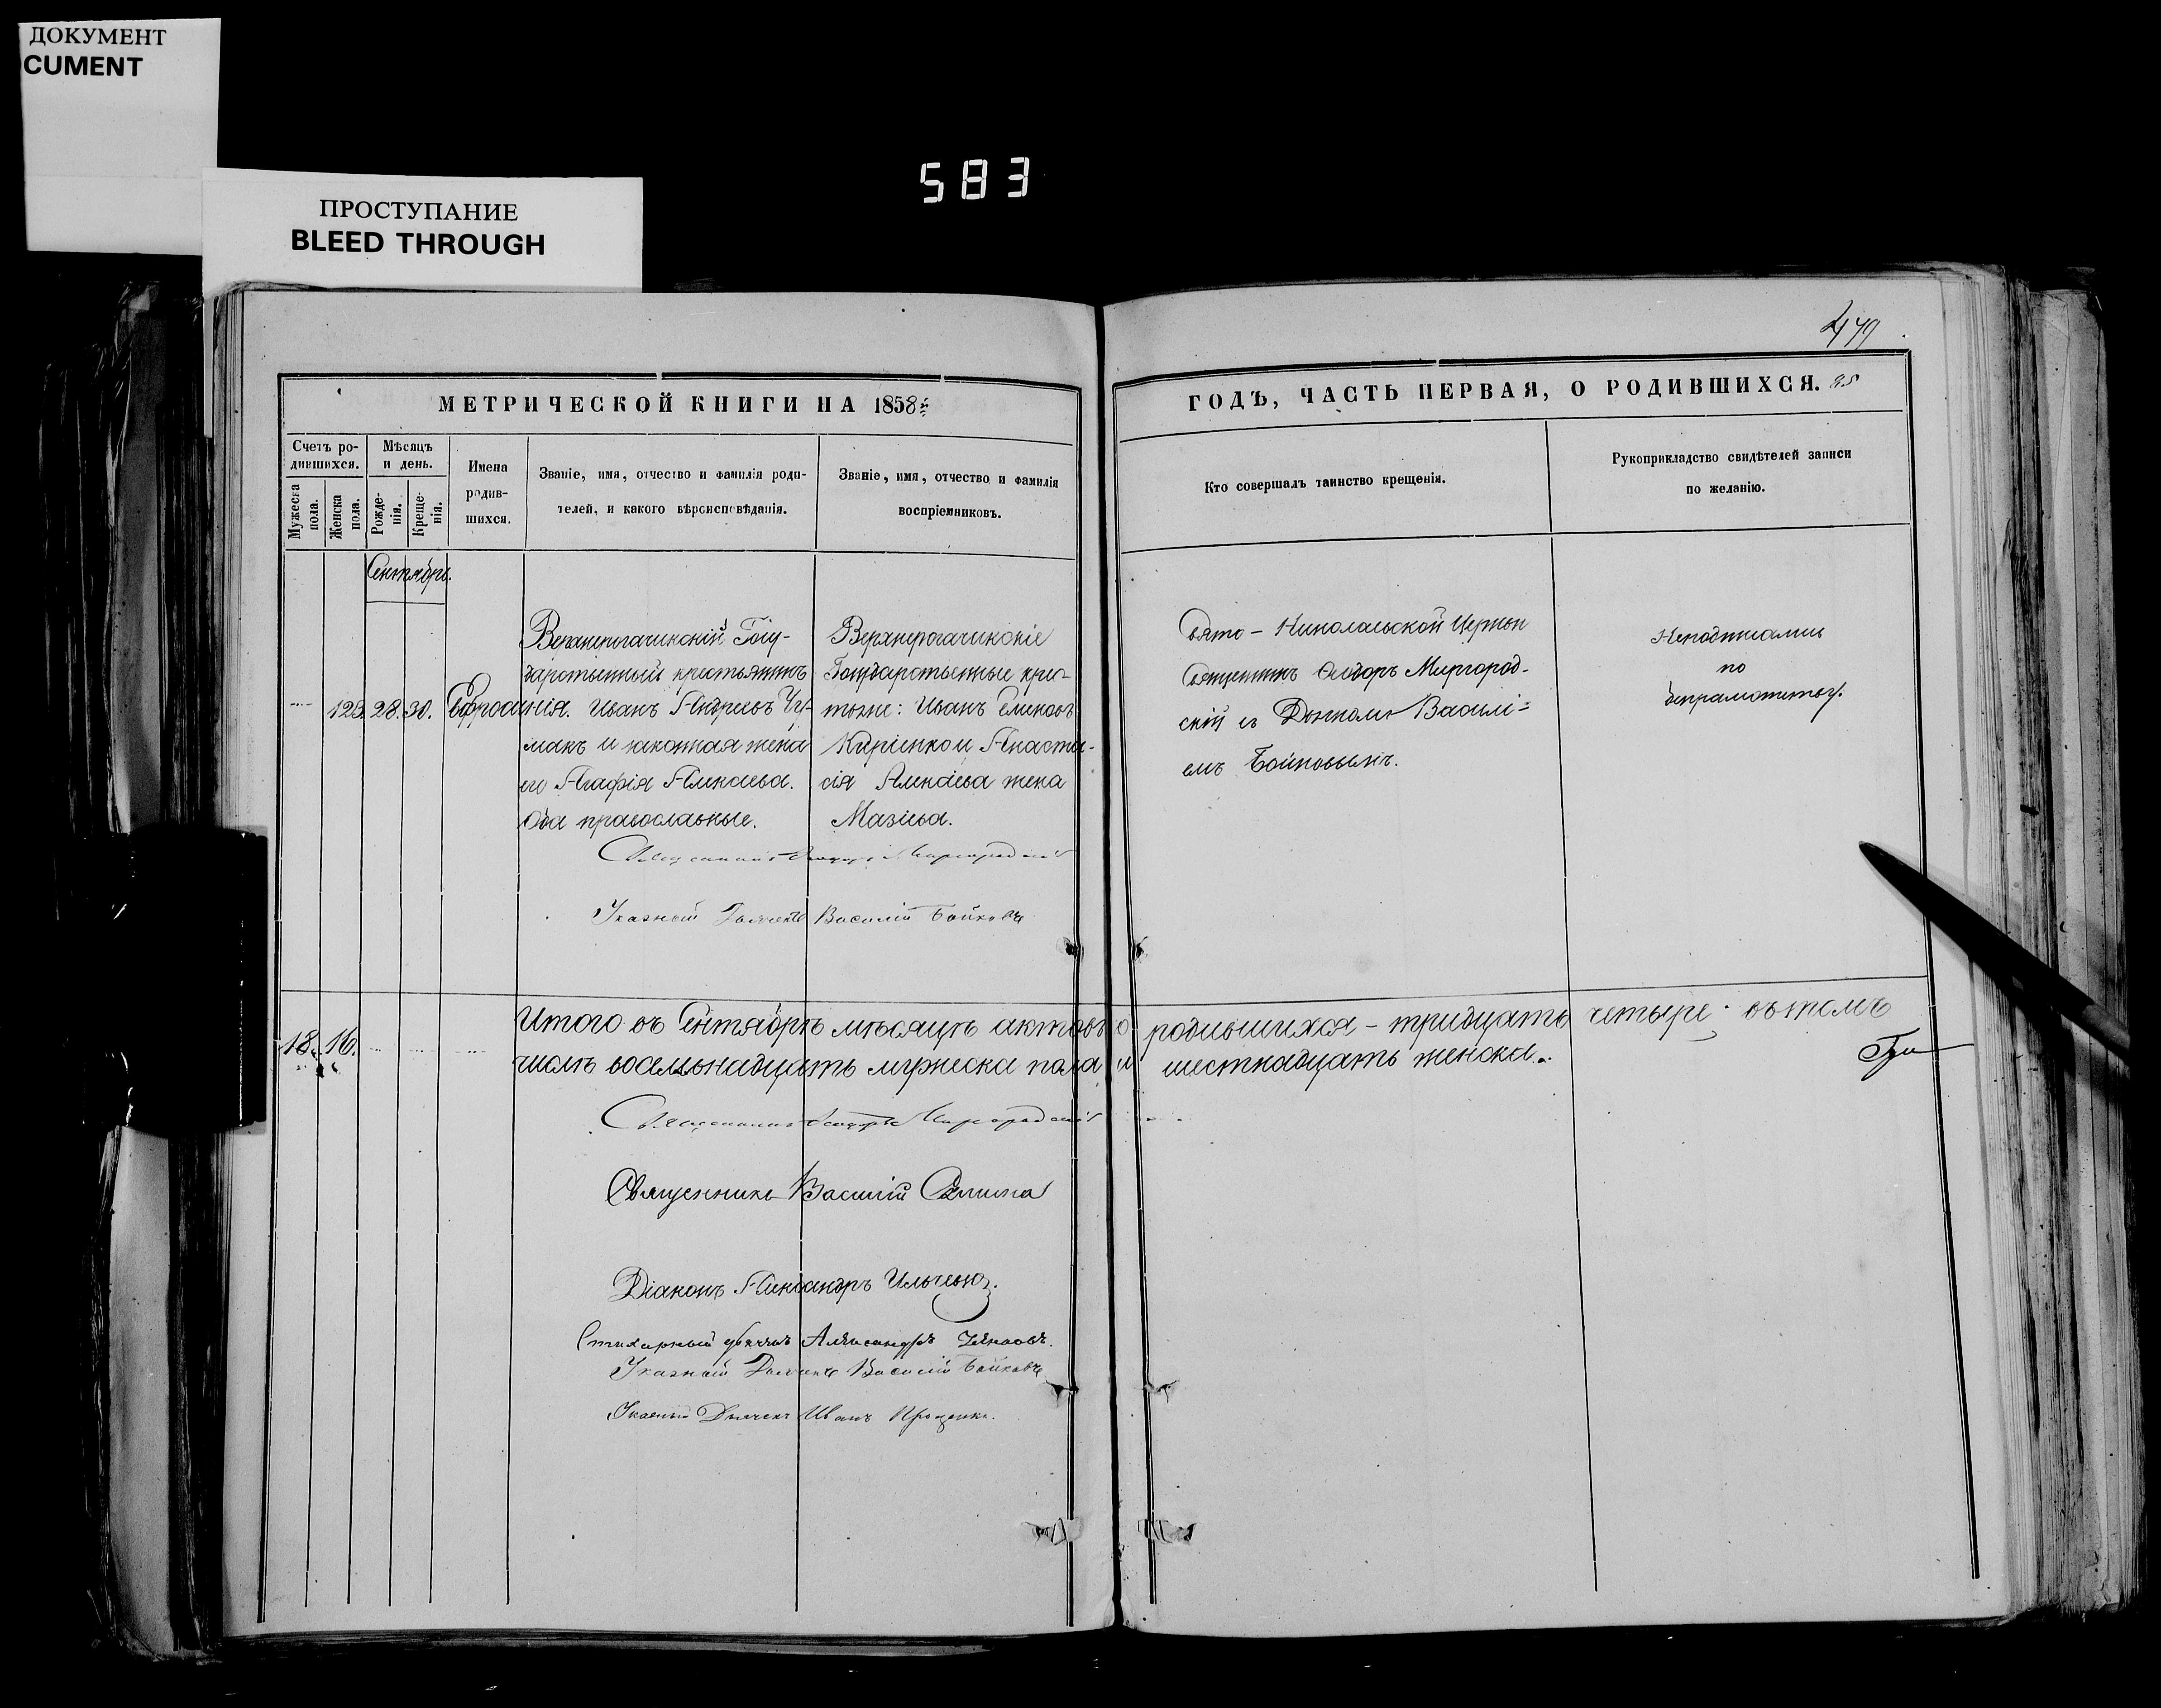 ДОКУМЕНТ
CUMENT
ПРОСТУПАНИЕ
BLEED THROUGH
583
479
МЕТРИЧЕСКОЙ КНИГИ НА 1858й
ГОДЪ, ЧАСТЬ ПЕРВАЯ, О РОДИВШИХСЯ. 95
Счетъ ро-
дившихся.
Мужеска
пола.
Женска
пола.
Мѣсяцъ
и день.
Рожде-
нія.
Креще-
нія.
Имена
родив-
шихся.
Званіе, имя, отчество и фамилія роди-
телей, и какого вѣроисповѣданія.
Званіе, имя, отчество и фамилія
воспріемниковъ.
Кто совершалъ таинство крещенія.
Рукоприкладство свидѣтелей записи
по желанію.
Сентябрь.
128. 28. 30. Евфросинія.
Верхнерогачикскій Госу-
дарственный крестьянинъ
Иванъ Андреевъ
и законная жена
его Агафія Алексѣева.
Оба православные.
Верхнерогачикскіе
Государственные крес-
тьяне: Иванъ
Киріенко и Анаста-
сія Алексѣева жена
Мазіева.
Свято-Николаевской Церкви
Священникъ Ѳеодоръ Миргород-
скій съ Дьячкомъ Василі-
емъ Бойковымъ.
Неподписались
по
безграмотству.
Священникъ Ѳеодоръ Миргородскій
Указный Дьячекъ Василій Бойковъ
18. 16.
Итого въ Сентябрѣ мѣсяцѣ актовъ о родившихся - тридцать четыре. въ томъ
числѣ восемьнадцать мужеска пола и шестнадцать женска.
Священникъ Ѳеодоръ Миргородскій
Священникъ Василій
Діаконъ Александръ Ильчевъ.
Стихарный дьячекъ Александръ
Указный Дьячекъ Василій Бойковъ
Указный Дьячекъ Иванъ Проценко.